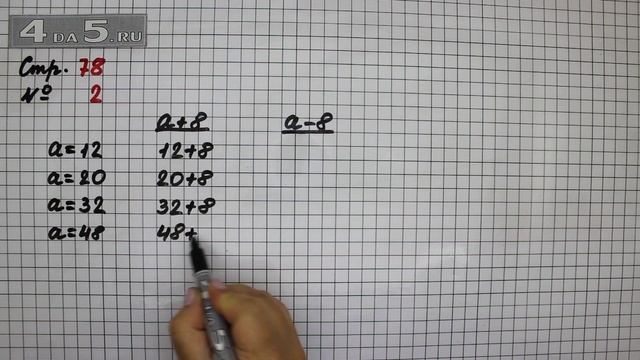 4DA5.RU
Стр. 78
№ 2
a+8 a-8
a=12 12+8
a=20 20+8
a=32 32+8
a=48 48+